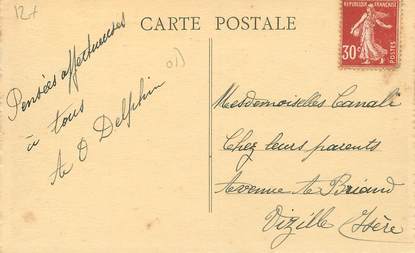 12+
CARTE POSTALE
RÉPUBLIQUE FRANÇAISE
30c
POSTES
01)
Pensées affectueuses
à tous
A O Delphin
Mesdemoiselles Canali
Chez leurs parents
Avenue A Briand
Vizille (Isère